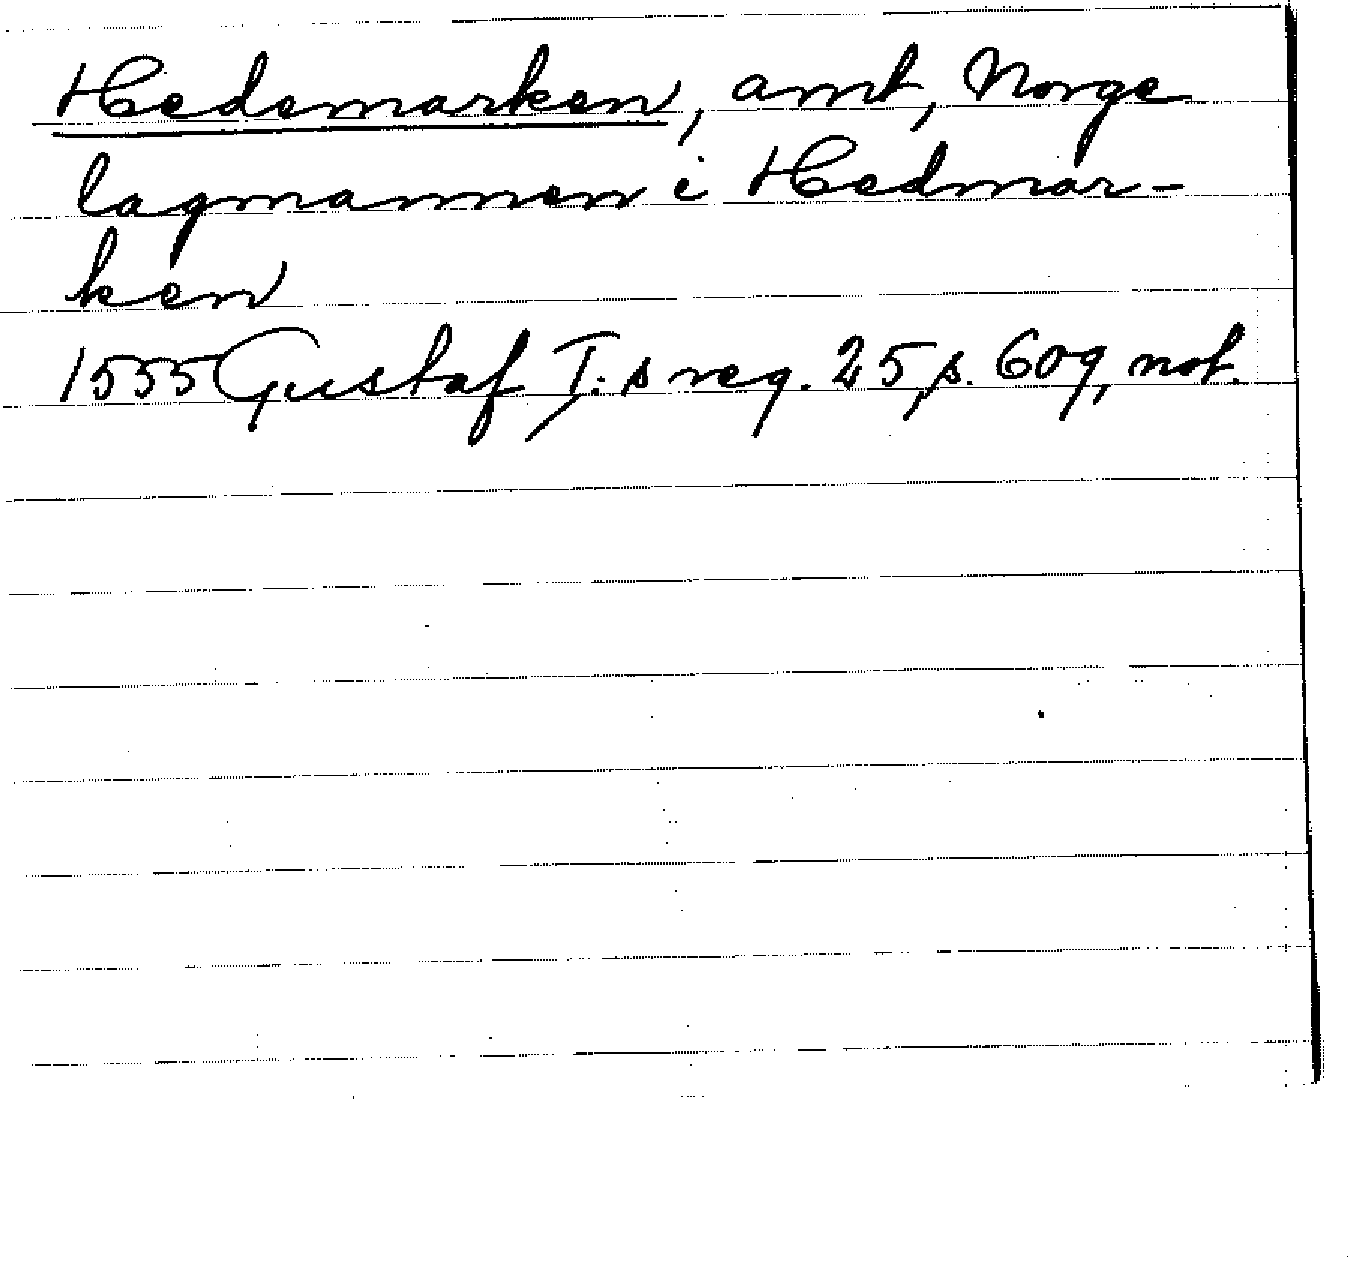 Hedemarken, amt, Norge
lagmannen i Hedmar-
ken
1555 Gustaf I:s reg. 25, s. 609, not.